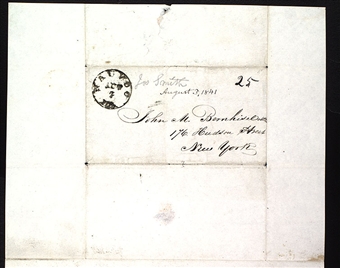 NAUVOO
AUG
ILL
Jos Smith
August 3, 1841
25
John M. Bernhisel
176 Hudson Street
New York